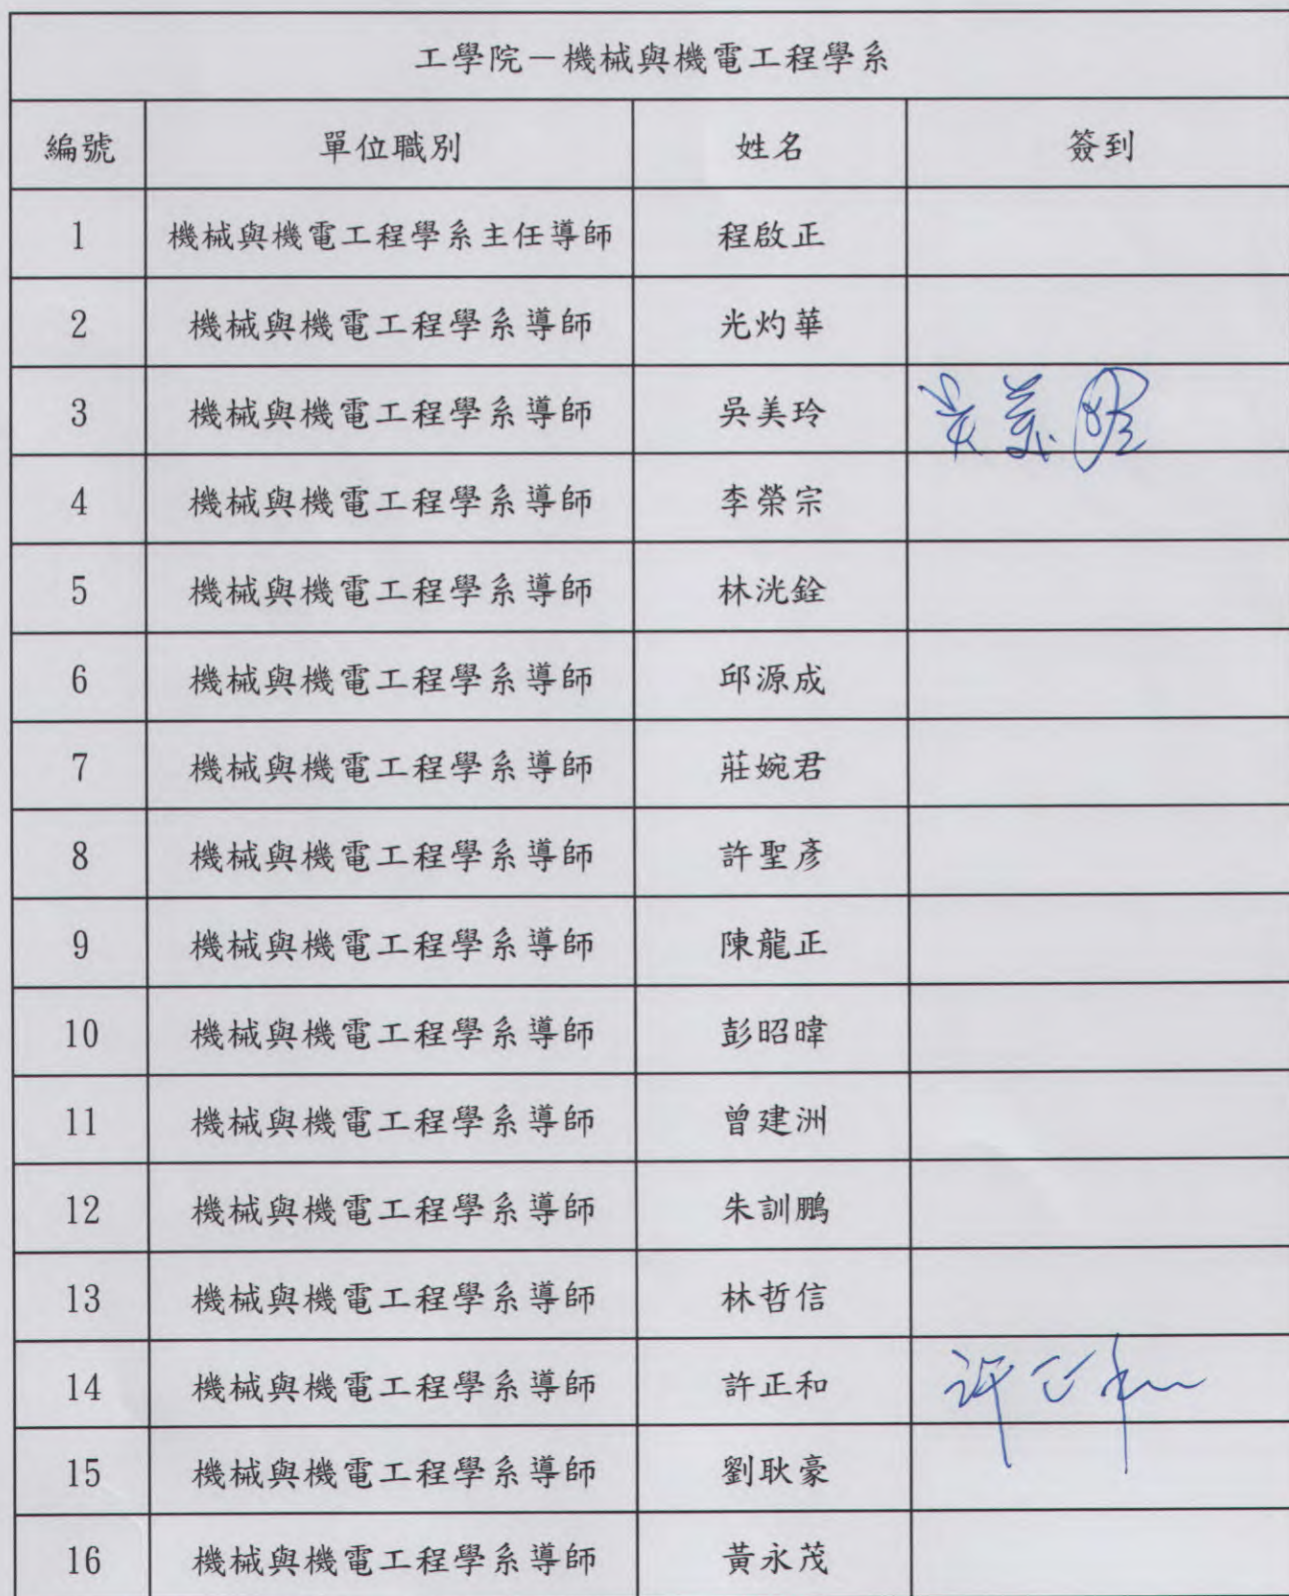 工學院－機械與機電工程學系
編號 單位職別 姓名 簽到
1 機械與機電工程學系主任導師 程啟正
2 機械與機電工程學系導師 光灼華
3 機械與機電工程學系導師 吳美玲 吳美玲
4 機械與機電工程學系導師 李榮宗
5 機械與機電工程學系導師 林洸銓
6 機械與機電工程學系導師 邱源成
7 機械與機電工程學系導師 莊婉君
8 機械與機電工程學系導師 許聖彥
9 機械與機電工程學系導師 陳龍正
10 機械與機電工程學系導師 彭昭暐
11 機械與機電工程學系導師 曾建洲
12 機械與機電工程學系導師 朱訓鵬
13 機械與機電工程學系導師 林哲信
14 機械與機電工程學系導師 許正和 許正和
15 機械與機電工程學系導師 劉耿豪
16 機械與機電工程學系導師 黃永茂